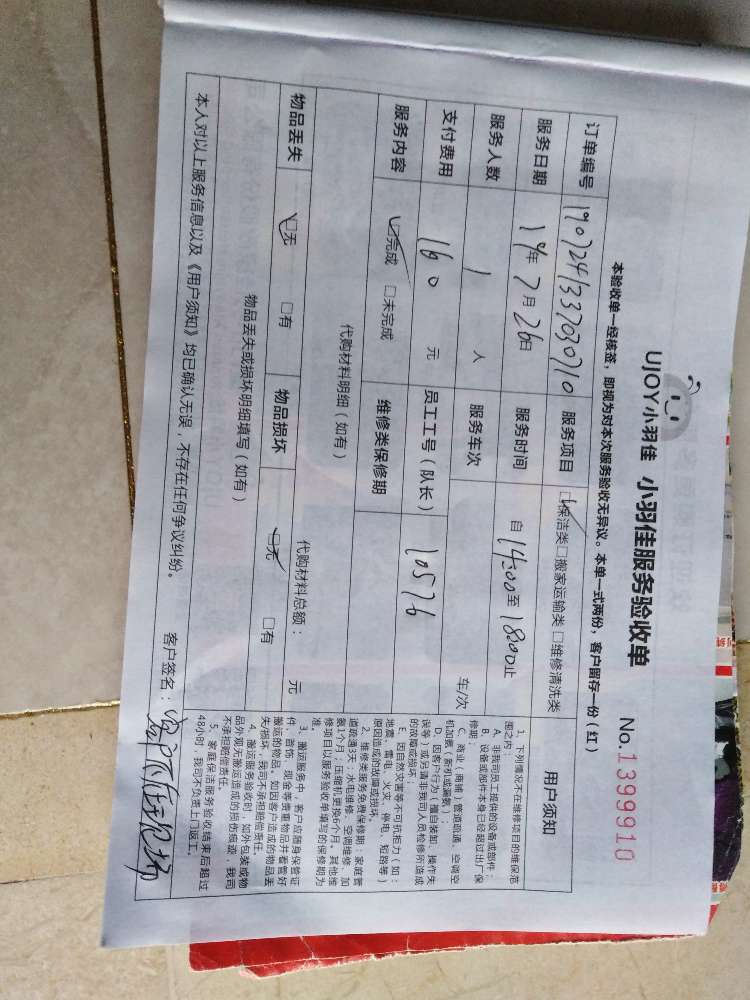 UJOY小羽佳 小羽佳服务验收单
No.1399910
本验收单一经核签，即视为对本次服务验收无异议。本单一式两份，客户留存一份（红）
订单编号 1907241337030710 服务项目 ☑保洁类□搬家运输类□维修清洗类
服务日期 19年7月26日 服务时间 自14:00至18:00止
服务人数 1 人 服务车次 车/次
支付费用 160 元 员工工号（队长） 10576
服务内容 ☑完成 □未完成 维修类保修期
代购材料明细（如有） 代购材料总额： 元
物品丢失 ☑无 □有 物品损坏 ☑无 □有
物品丢失或损坏明细填写（如有）
本人对以上服务信息以及《用户须知》均已确认无误，不存在任何争议纠纷。
客户签名：客户不在现场
用户须知
1、下列情况不在维修项目的维保范
围之内：
A、非我司员工提供的设备或部件；
B、设备或部件本身已经超过出厂保
修期；
C、商业（商铺）管道疏通、空调空
机加氨（制冷机漏氨）；
D、因客户行为（擅自装卸、操作失
误等）或另请非我司人员检修所造成
的故障或损坏；
E、因自然灾害等不可抗拒力（如：
地震、雷电、火灾、停电、短路等）
原因造成的故障或损坏。
2、维修类服务免费保修期：家庭管
道疏通3天；水电维修、空调维修、加
氨1个月；压缩机更换6个月；其他维
修项目以服务验收单填写的保修期为
准。
3、搬运服务中，客户应随身保管证
件、首饰、现金等贵重物品并看管好
搬运的物品。如因客户造成的物品丢
失/损坏，我司不承担赔偿责任。
4、搬运服务验收时，如外包装或物
品外观无搬运造成的损伤痕迹，我司
不承担赔偿责任。
5、家庭保洁服务验收结束后超过
48小时，我司不负责上门返工。